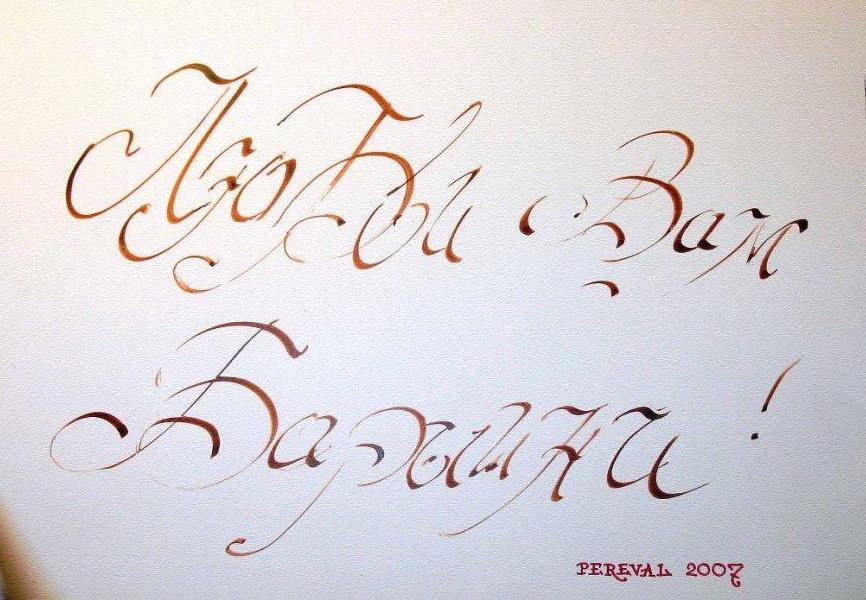 Любви Вам
Барышни!
PEREVAL 2007